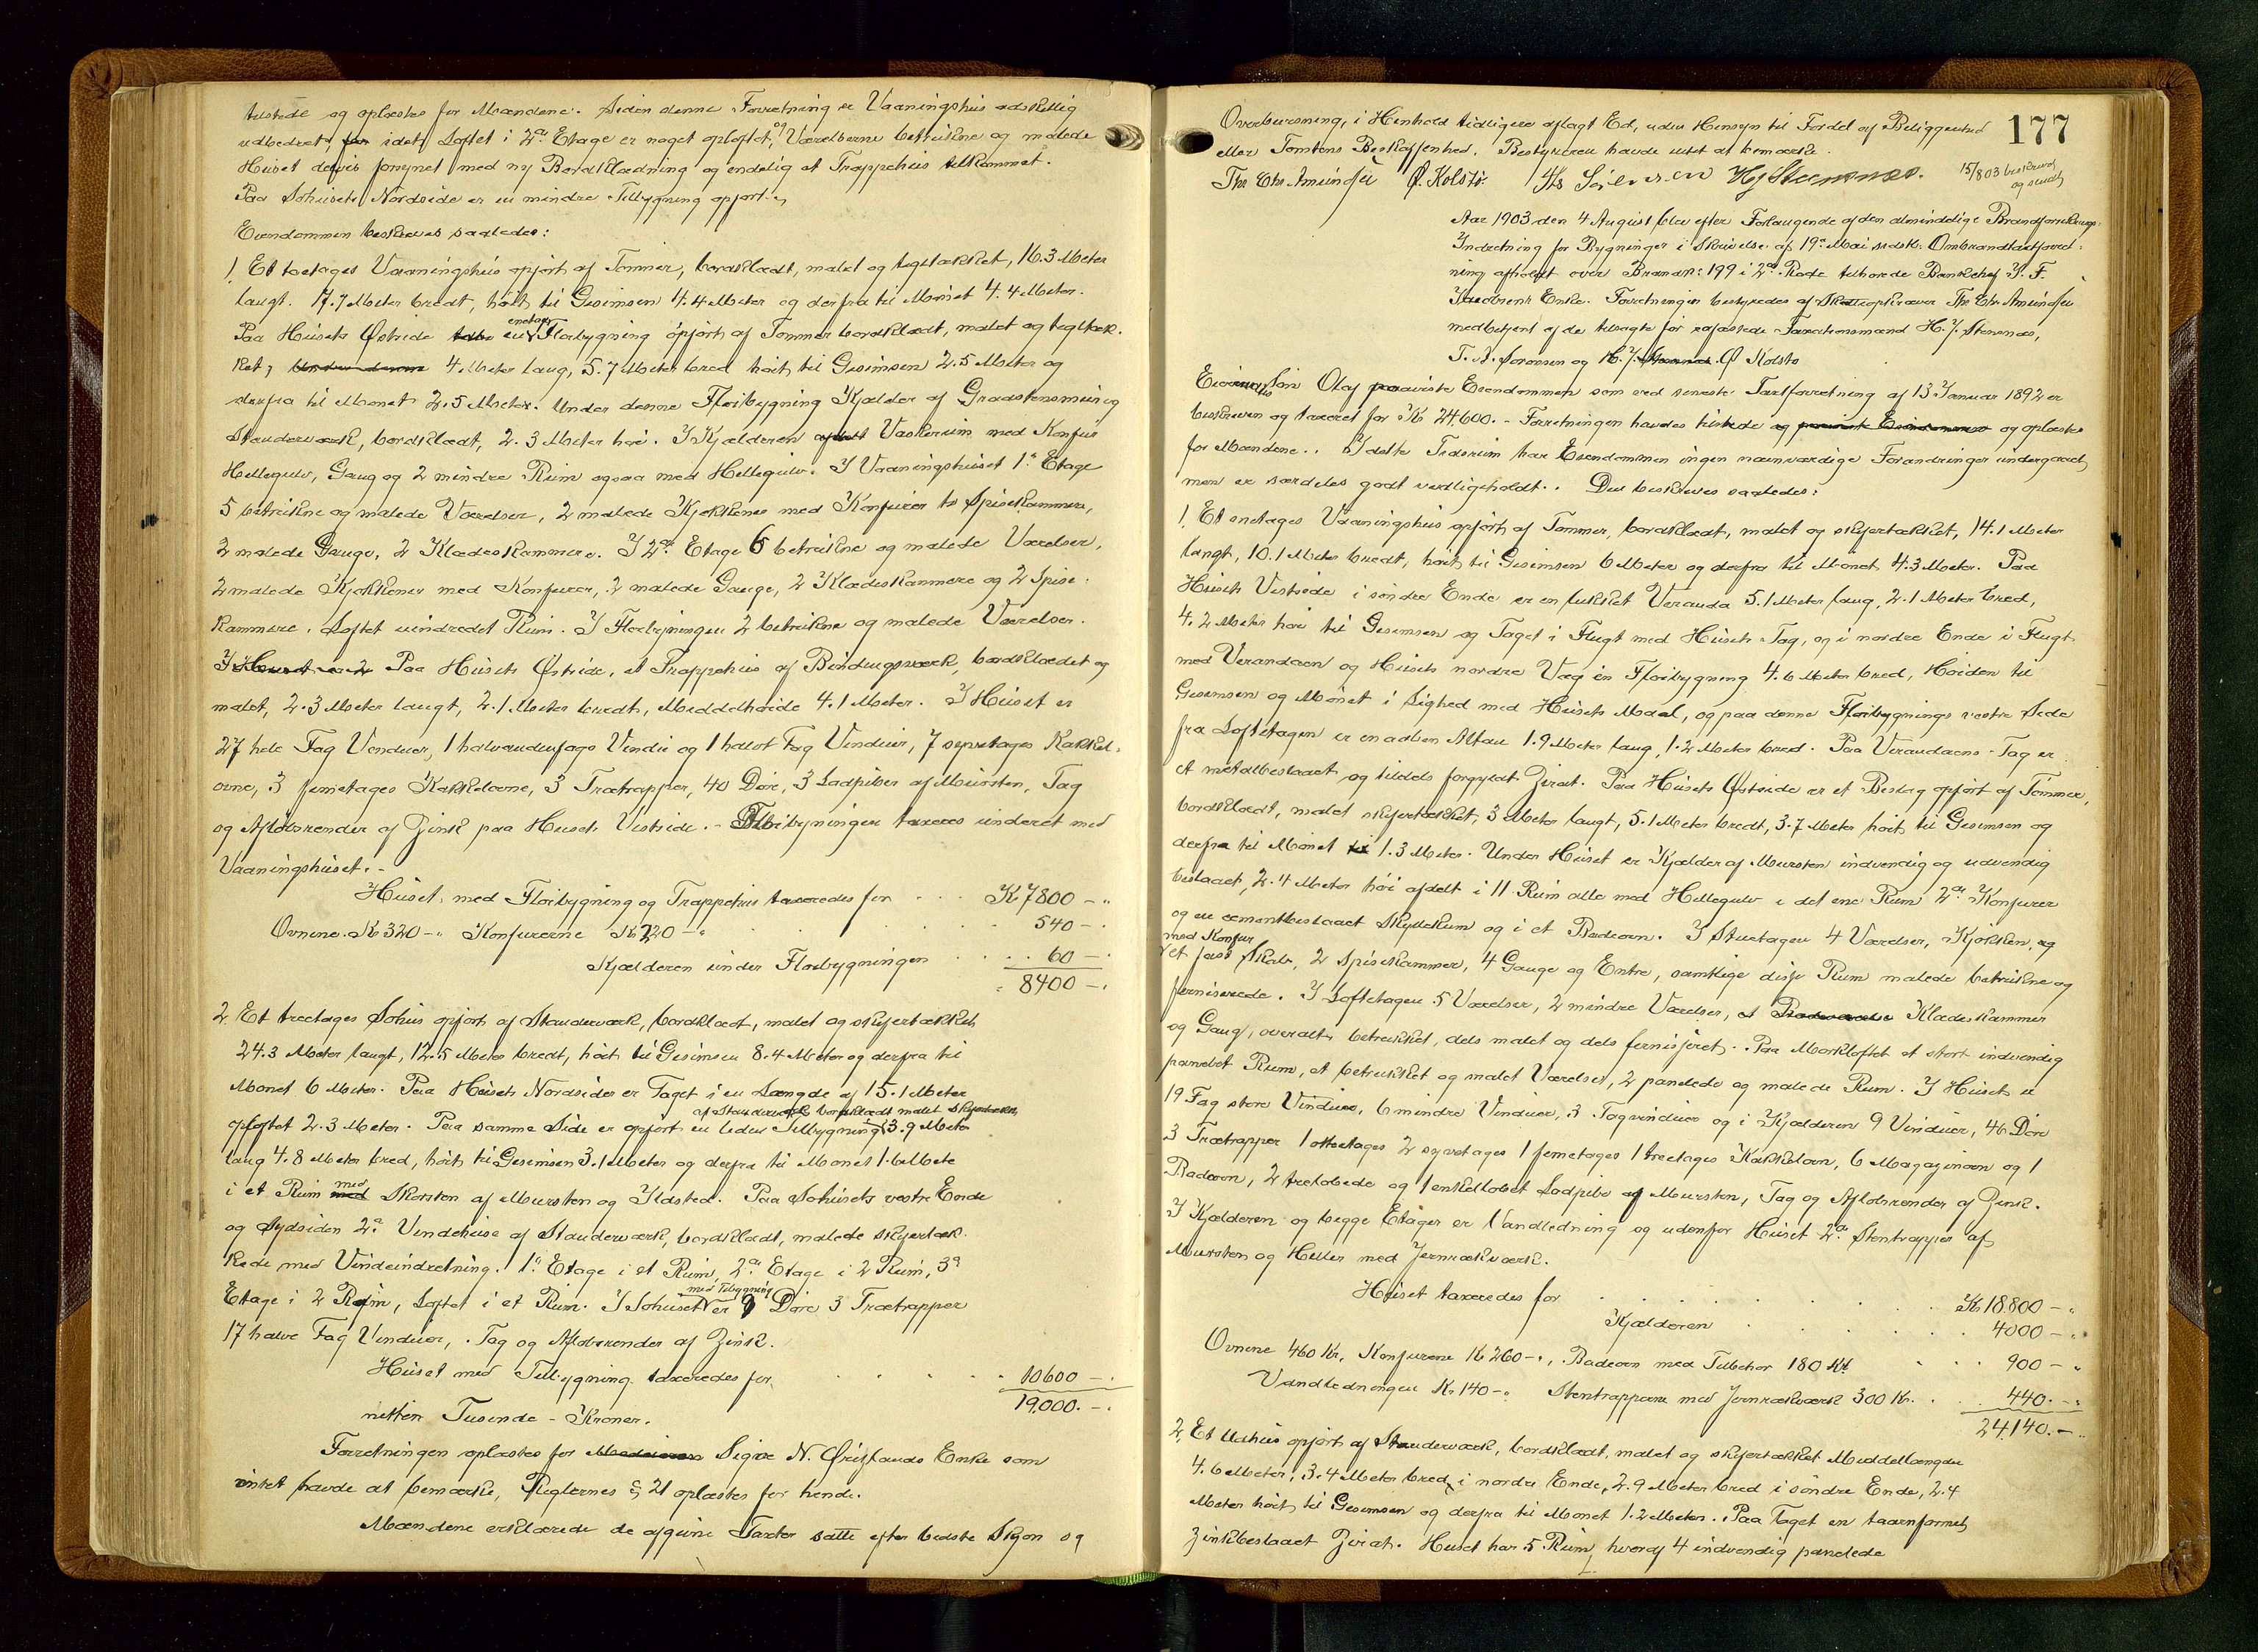 tilstede og oplæstes for Mændene. Siden denne Forretning er Vaaningshus adskillig
udbedret, for idet Loftet i 2den Etage er noget opløftet, og Værelserne betrukne og malede
Huset delvis fornyet med ny Bordklædning og endelig et Trappehus tilkommet.
Paa Søhusets Nordside er en mindre Tilbygning opført.
Eiendommen beskreves saaledes:
1, Et toetages Vaaningshus opført af Tømmer, bordklædt, malet og tegltækket, 16.3 Meter
langt. 7.7 Meter bredt, høit til Gesimsen 4.4 Meter og derfra til Mønet 4.4 Meter.
Paa Husets Østside en enetages Fløibygning opført af Tømmer bordklædt, malet og tegltæk-
ket, Under denne 4. Meter lang, 5.7 Meter bred høit til Gesimsen 2.5 Meter og
derfra til Mønet 2.5 Meter. Under denne Fløibygning Kjælder af Graastensmur og
Standerværk, bordklædt, 2.3 Meter høi. I Kjælderen Vaskerum med Komfur
Hellegulv, Gang og 2 mindre Rum ogsaa med Hellegulv. I Vaaningshuset 1ste Etage
5 betrukne og malede Værelser, 2 malede Kjøkkener med Komfurer to Spisekammere,
2 malede Gange, 2 Klædeskammere. I 2den Etage 6 betrukne og malede Værelser,
2 malede Kjøkkener med Komfurer, 2 malede Gange, 2 Klædeskammere og 2 Spise-
kammere. Loftet uindredet Rum. I Fløibygningen 2 betrukne og malede Værelser.
I Huset er 2 Paa Husets Østside, et Trappehus af Bindingsværk, bordklædet og
malet, 2.3 Meter langt, 2.1 Meter bredt, Middelhøide 4.1 Meter. I Huset er
27 hele Fag Vinduer, 1 halvandenfags Vindu og 1 halvt Fag Vinduer, 7 syvetages Kakkel-
ovne, 3 femetages Kakkelovne, 3 Trætrapper, 40 Døre, 3 Ladpiber af Mursten, Tag
og Afløbsrender af Zink paa Husets Vestside. - Fløibygningen taxeres underet med
Vaaningshuset. -
Huset med Fløibygning og Trappehus taxeredes for . . . Kr 7800 - "
Ovnene Kr 320 - " Komfurerne Kr 220 - " . . . 540 - "
Kjælderen under Fløibygningen . . . 60 - "
8400 - "
2. Et treetages Søhus opført af Standerværk, bordklædt, malet og skifertækket
24.3 Meter langt, 12.5 Meter bredt, høit til Gesimsen 8.4 Meter og derfra til
Mønet 6 Meter. Paa Husets Nordsider er Taget i en Længde af 15.1 Meter
af Standerværk, bordklædt malet skifertækket,
opløftet 2.3 Meter. Paa samme Side er opført en liden Tilbygning 3.9 Meter
lang 4.8 Meter bred, høit til Gesimsen 3.1 Meter og derfra til Mønet 1.6 Meter
i et Rum med Skorsten af Mursten og Ildsted. Paa Søhusets vestre Ende
og Sydsiden 2de Vindehuse af Standerværk, bordklædt, malede skifertæk-
kede med Vindeindretning. 1ste Etage i et Rum, 2den Etage i 2 Rum, 3die
Etage i 2 Rum, Loftet i et Rum. I Søhuset med Tilbygning er 9 Døre 3 Trætrapper
17 halve Fag Vinduer, Tag og Afløbsrender af Zink.
Huset med Tilbygning taxeredes for . . . 10600 - "
19.000. - "
nitten Tusinde - Kroner.
Forretningen oplæstes for Signe N. Øristands Enke som
intet havde at bemærke, Reglernes § 21 oplæstes for hende.
Mændene erklærede de afgivne Taxter satte efter bedste Skjøn og
177
Overbevisning, i Henhold tidligere aflagt Ed, uden Hensyn til Fordel af Beliggenhed
eller Tomtens Beskaffenhed. Bestyreren havde intet at bemærke.
Ths Chr. Amundsen Ø. Kolstø. Ths Sørensen HJ Steensnæs.
15/8 03 beskrevet
og sendt
Aar 1903 den 4 August blev efter Forlangende af den almindelige Brandforsikrings-
Indretning for Bygninger i Skrivelse af 19de Mai sidstl: Ombrandtaxtforret-
ning afholdt over Brandnr: 199 i 2den Rode tilhørende Bankchef J. F.
Jacobsens Enke. Forretningen bestyredes af Skatteopkræver Ths Chr. Amundsen
medbetjent af de tilsagte for edfæstede Taxationsmænd H. J. Stensnæs,
T. A. Sørensen og H. J. Stensnæs Ø Kolstø
Eierindens Søn Olaf paaviste Eiendommen som ved seneste Taxtforretning af 13 Januar 1892 er
beskreven og taxeret for Kr 24600. - Forretningen havdes tilstede og paaviste Eiendommen og oplæstes
for Mændene. I dette Tidsrum har Eiendommen ingen nævnværdige Forandringer undergaaet
men er særdeles godt vedligeholdt. Den beskreves saaledes:
1, Et enetages Vaaningshus opført af Tømmer, bordklædt, malet og skifertækket, 14.1 Meter
langt, 10.1 Meter bredt, høit til Gesimsen 6 Meter og derfra til Mønet 4.3 Meter. Paa
Husets Vestside i søndre Ende er en lukket Veranda 5.1 Meter lang, 2.1 Meter bred,
4.2 Meter høi til Gesimsen og Taget i Flugt med Husets Tag, og i nordre Ende i Flugt
med Verandaen og Husets nordre Væg en Fløibygning 4.6 Meter bred, Høiden til
Gesimsen og Mønet i Lighed med Husets Maal, og paa denne Fløibygnings vestre Side
fra Loftetagen er en aaben Altan 1.9 Meter lang, 1.2 Meter bred. Paa Verandaens Tag er
et metalbeslaaet og tildels forgyldt Zirat. Paa Husets Østside er et Bislag opført af Tømmer,
bordklædt, malet skifertækket, 3 Meter langt, 5.1 Meter bredt, 3.7 Meter høit til Gesimsen og
derfra til Mønet 1.3 Meter. Under Huset er Kjælder af Mursten indvendig og udvendig
beslaaet, 2.4 Meter høi afdelt i 11 Rum alle med Hellegulv i det ene Rum 2de Komfurer
og en cementbeslaaet Skyllekum og i et Badeovn. I Stuetagen 4 Værelser, Kjøkken, og
med Komfur
et fast Skab, 2 Spisekammer, 4 Gange og Entre, samtlige disse Rum malede betrukne og
ferniserede. I Loftetagen 5 Værelser, 2 mindre Værelser, et Badeværelse Klædeskammer
og Gang, overalt betrukket, dels malet og dels fernisjeret. Paa Mørkloftet et stort indvendig
panelet Rum, et betrukket og malet Værelse, 2 panelede og malede Rum. I Huset er
19 Fag store Vinduer, 6 mindre Vinduer, 3 Tagvinduer og i Kjælderen 9 Vinduer, 46 Døre
3 Trætrapper 1 ottetages 2 syvetages 1 femetages 1 treetages Kakkelovn, 6 Magazinovn og 1
Badeovn, 2 treløbede og 1 enkeltløbet Ladpibe af Mursten, Tag og Afløbsrender af Zink.
I Kjælderen og begge Etager er Vandledning og udenfor Huset 2de Stentrapper af
Mursten og Heller med Jernrækværk.
Huset taxeredes for . . . Kr 18.800 - "
Kjælderen . . . 4000 - "
Ovnene 460 Kr, Komfurene Kr 260 - ", Badeovn med Tilbehør 180 Kr . . . 900 - "
Vandledningen Kr 140 - " Stentrapperne med Jernrækværk 300 Kr. . . . 440. - "
24140. - "
2, Et Udhus opført af Standerværk, bordklædt, malet og skifertækket Middellængde
4.6 Meter, 3.4 Meter bred i nordre Ende, 2.9 Meter bred i søndre Ende, 2.4
Meter høit til Gesimsen og derfra til Mønet 1.2 Meter. Paa Taget en taarnformet
zinkbeslaaet Zirat. Huset har 5 Rum, hvoraf 4 indvendig panelede